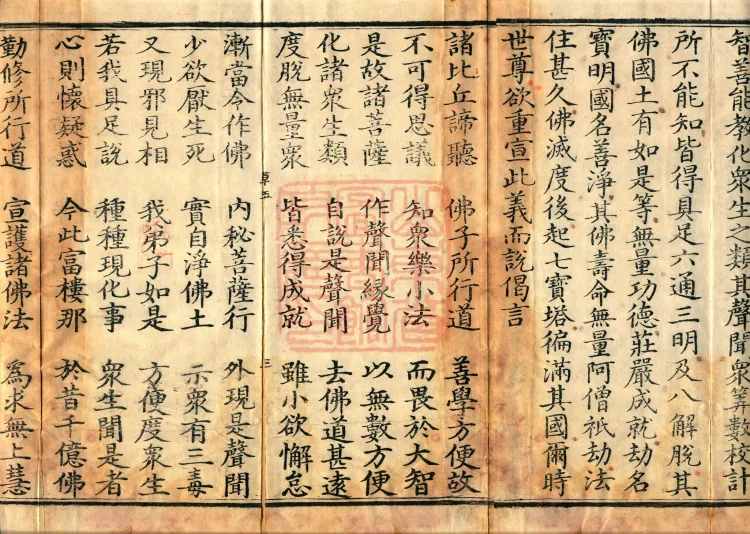 智善能教化衆生之類其聲聞衆算數校計
所不能知皆得具足六通三明及八解脫其
佛國土有如是等無量功德莊嚴成就劫名
寶明國名善淨其佛壽命無量阿僧祇劫法
住甚久佛滅度後起七寶塔徧滿其國爾時
世尊欲重宣此義而說偈言
諸比丘諦聽 佛子所行道 善學方便故
不可得思議 知衆樂小法 而畏於大智
是故諸菩薩 作聲聞緣覺 以無數方便
化諸衆生類 自說是聲聞 去佛道甚遠
度脫無量衆 皆悉得成就 雖小欲懈怠
草五 三
漸當令作佛 內秘菩薩行 外現是聲聞
少欲厭生死 實自淨佛土 示衆有三毒
又現邪見相 我弟子如是 方便度衆生
若我具足說 種種現化事 衆生聞是者
心則懷疑惑 今此富樓那 於昔千億佛
勤修所行道 宣護諸佛法 爲求無上慧